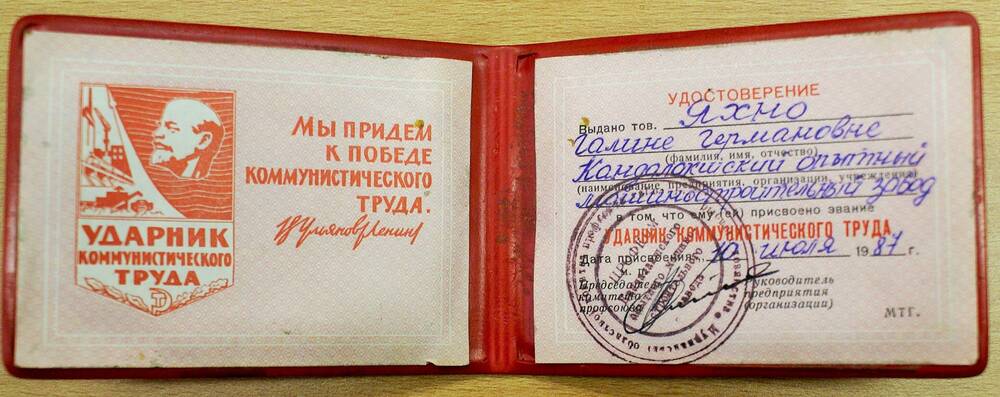 УДАРНИК
КОММУНИСТИЧЕСКОГО
ТРУДА
МЫ ПРИДЕМ
К ПОБЕДЕ
КОММУНИСТИЧЕСКОГО
ТРУДА.
В.Ульянов(Ленин)
УДОСТОВЕРЕНИЕ
Выдано тов. Яхно
Галине Германовне
(фамилия, имя, отчество)
Кандалакшский опытный
(наименование предприятия, организации, учреждения)
машиностроительный завод
в том, что ему (ей) присвоено звание
УДАРНИК КОММУНИСТИЧЕСКОГО ТРУДА
Дата присвоения 10 июля 1987 г.
М. П.
Председатель комитета профсоюза
Руководитель предприятия (организации)
МТГ.